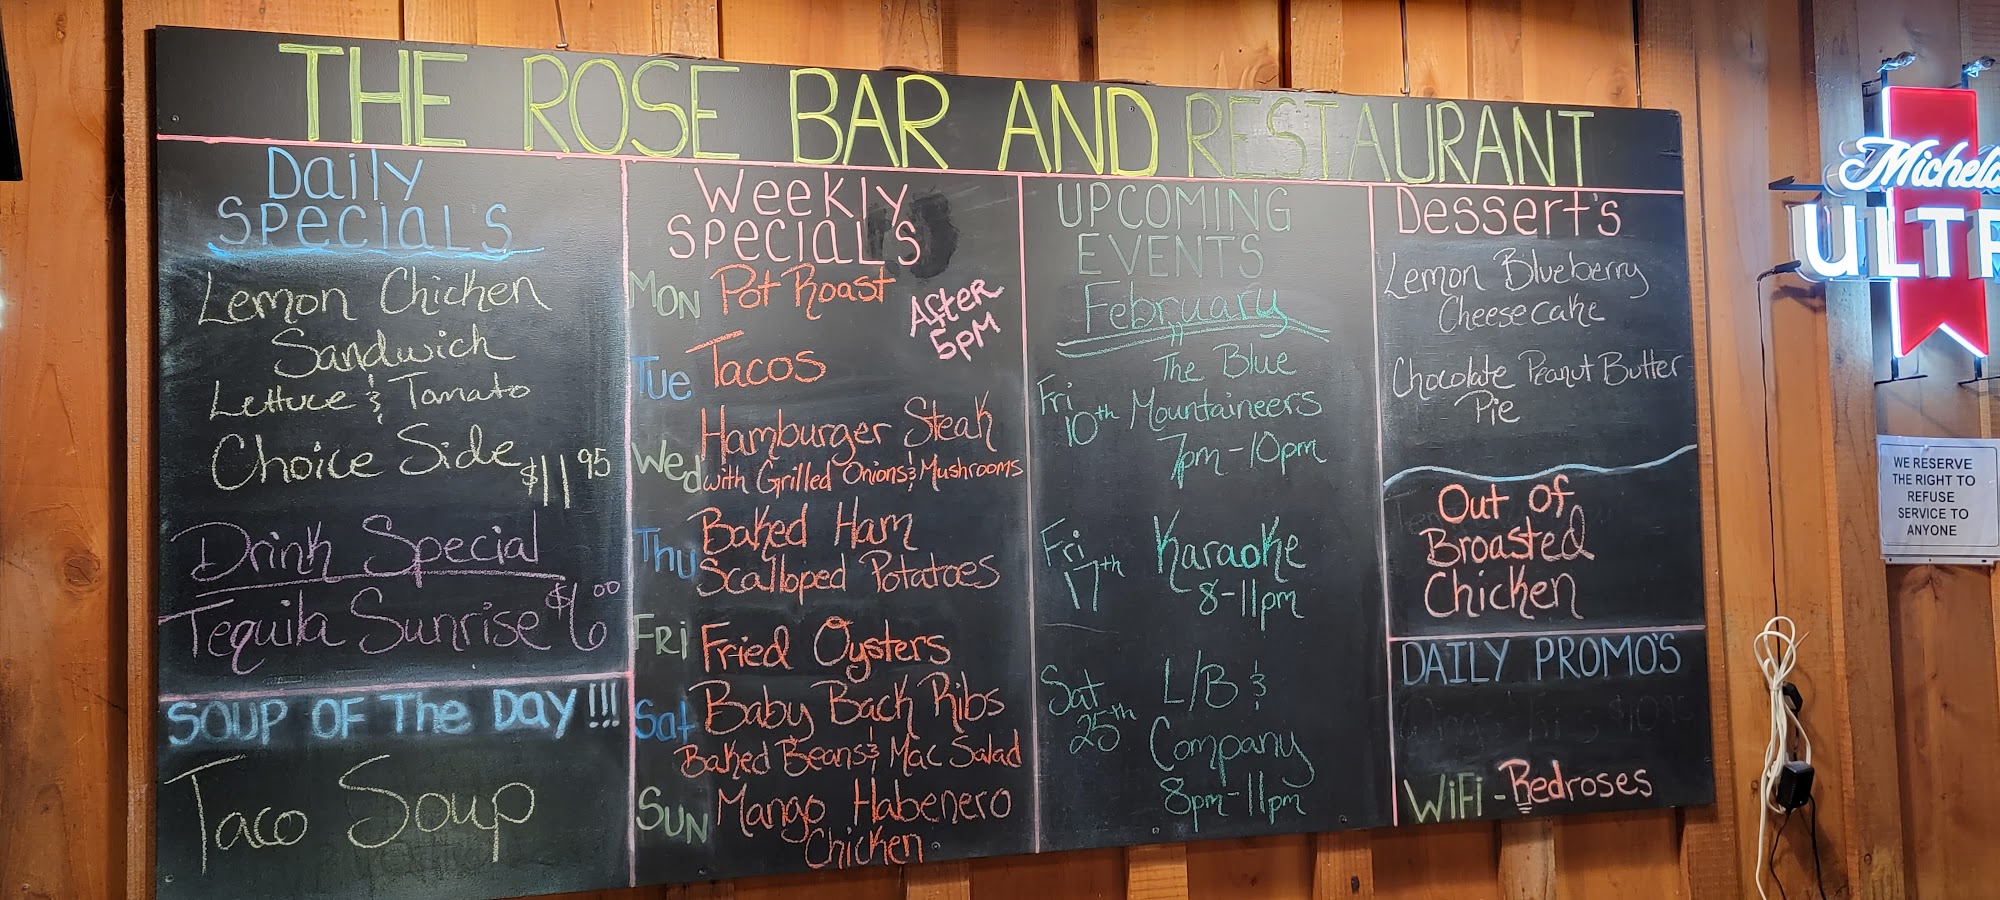 THE ROSE BAR AND RESTAURANT
Daily
SPECIALS
Lemon Chicken
Sandwich
Lettuce & Tomato
Choice Side $11 95
Drink Special
Tequila Sunrise $6 00
SOUP OF THE DAY!!!
Taco Soup
Weekly
SPECIALS
After
5PM
MON Pot Roast
Tue Tacos
Wed Hamburger Steak
with Grilled Onions & Mushrooms
Thu Baked Ham
Scalloped Potatoes
FRI Fried Oysters
Sat Baby Back Ribs
Baked Beans & Mac Salad
SUN Mango Habenero
Chicken
UPCOMING
EVENTS
February
Fri 10th The Blue
Mountaineers
7pm-10pm
Fri 17th Karaoke
8-11pm
Sat 25th L/B &
Company
8pm-11pm
Dessert's
Lemon Blueberry
Cheesecake
Chocolate Peanut Butter
Pie
Out of
Broasted
Chicken
DAILY PROMO'S
WiFi - Redroses
Michelo
ULTR
WE RESERVE
THE RIGHT TO
REFUSE
SERVICE TO
ANYONE